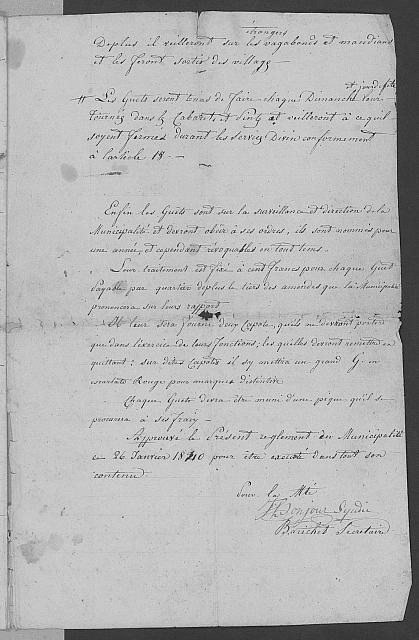 étrangers
Deplus il veilleront sur les vagabonds et mandians
et les feront sortir des village
et jour de fête
# Les Guets seront tenus de faire chaque Dimanche leur
tournée dans les Cabarets et Pintes et veilleront à ce qu'il
soyent fermés durant les service Divin conformement
à l'article 18
Enfin les Guets sont sur la surveillance et direction de la
Municipalité et devront obéir à ses ordres, ils sont nommés pour
une année, et cependant revoquables en tout tems.
Leur traitement est fixé à cent francs pour chaque Guet
payable par quartier deplus le tiers des amendes que la Municipalité
prononcera sur leurs rapport
Il leur sera fourni deux Capote, qu'ils ne devront porter
que dans l'exercice de leurs fonctions, les quilles devront remettre en
quittant; sur dites Capotes il s'y mettra un grand G en
escarlate Rouge pour marques distintive
Chaque Guets devra être muni d'une pique qu'il se
procurera à ses fraix
Approuvé le Présent reglement en Municipalité
ce 26 Janvier 1810 pour être executé dans tout son
contenu
Pour la Mté
Bonjour Syndic
Barichet Secretaire